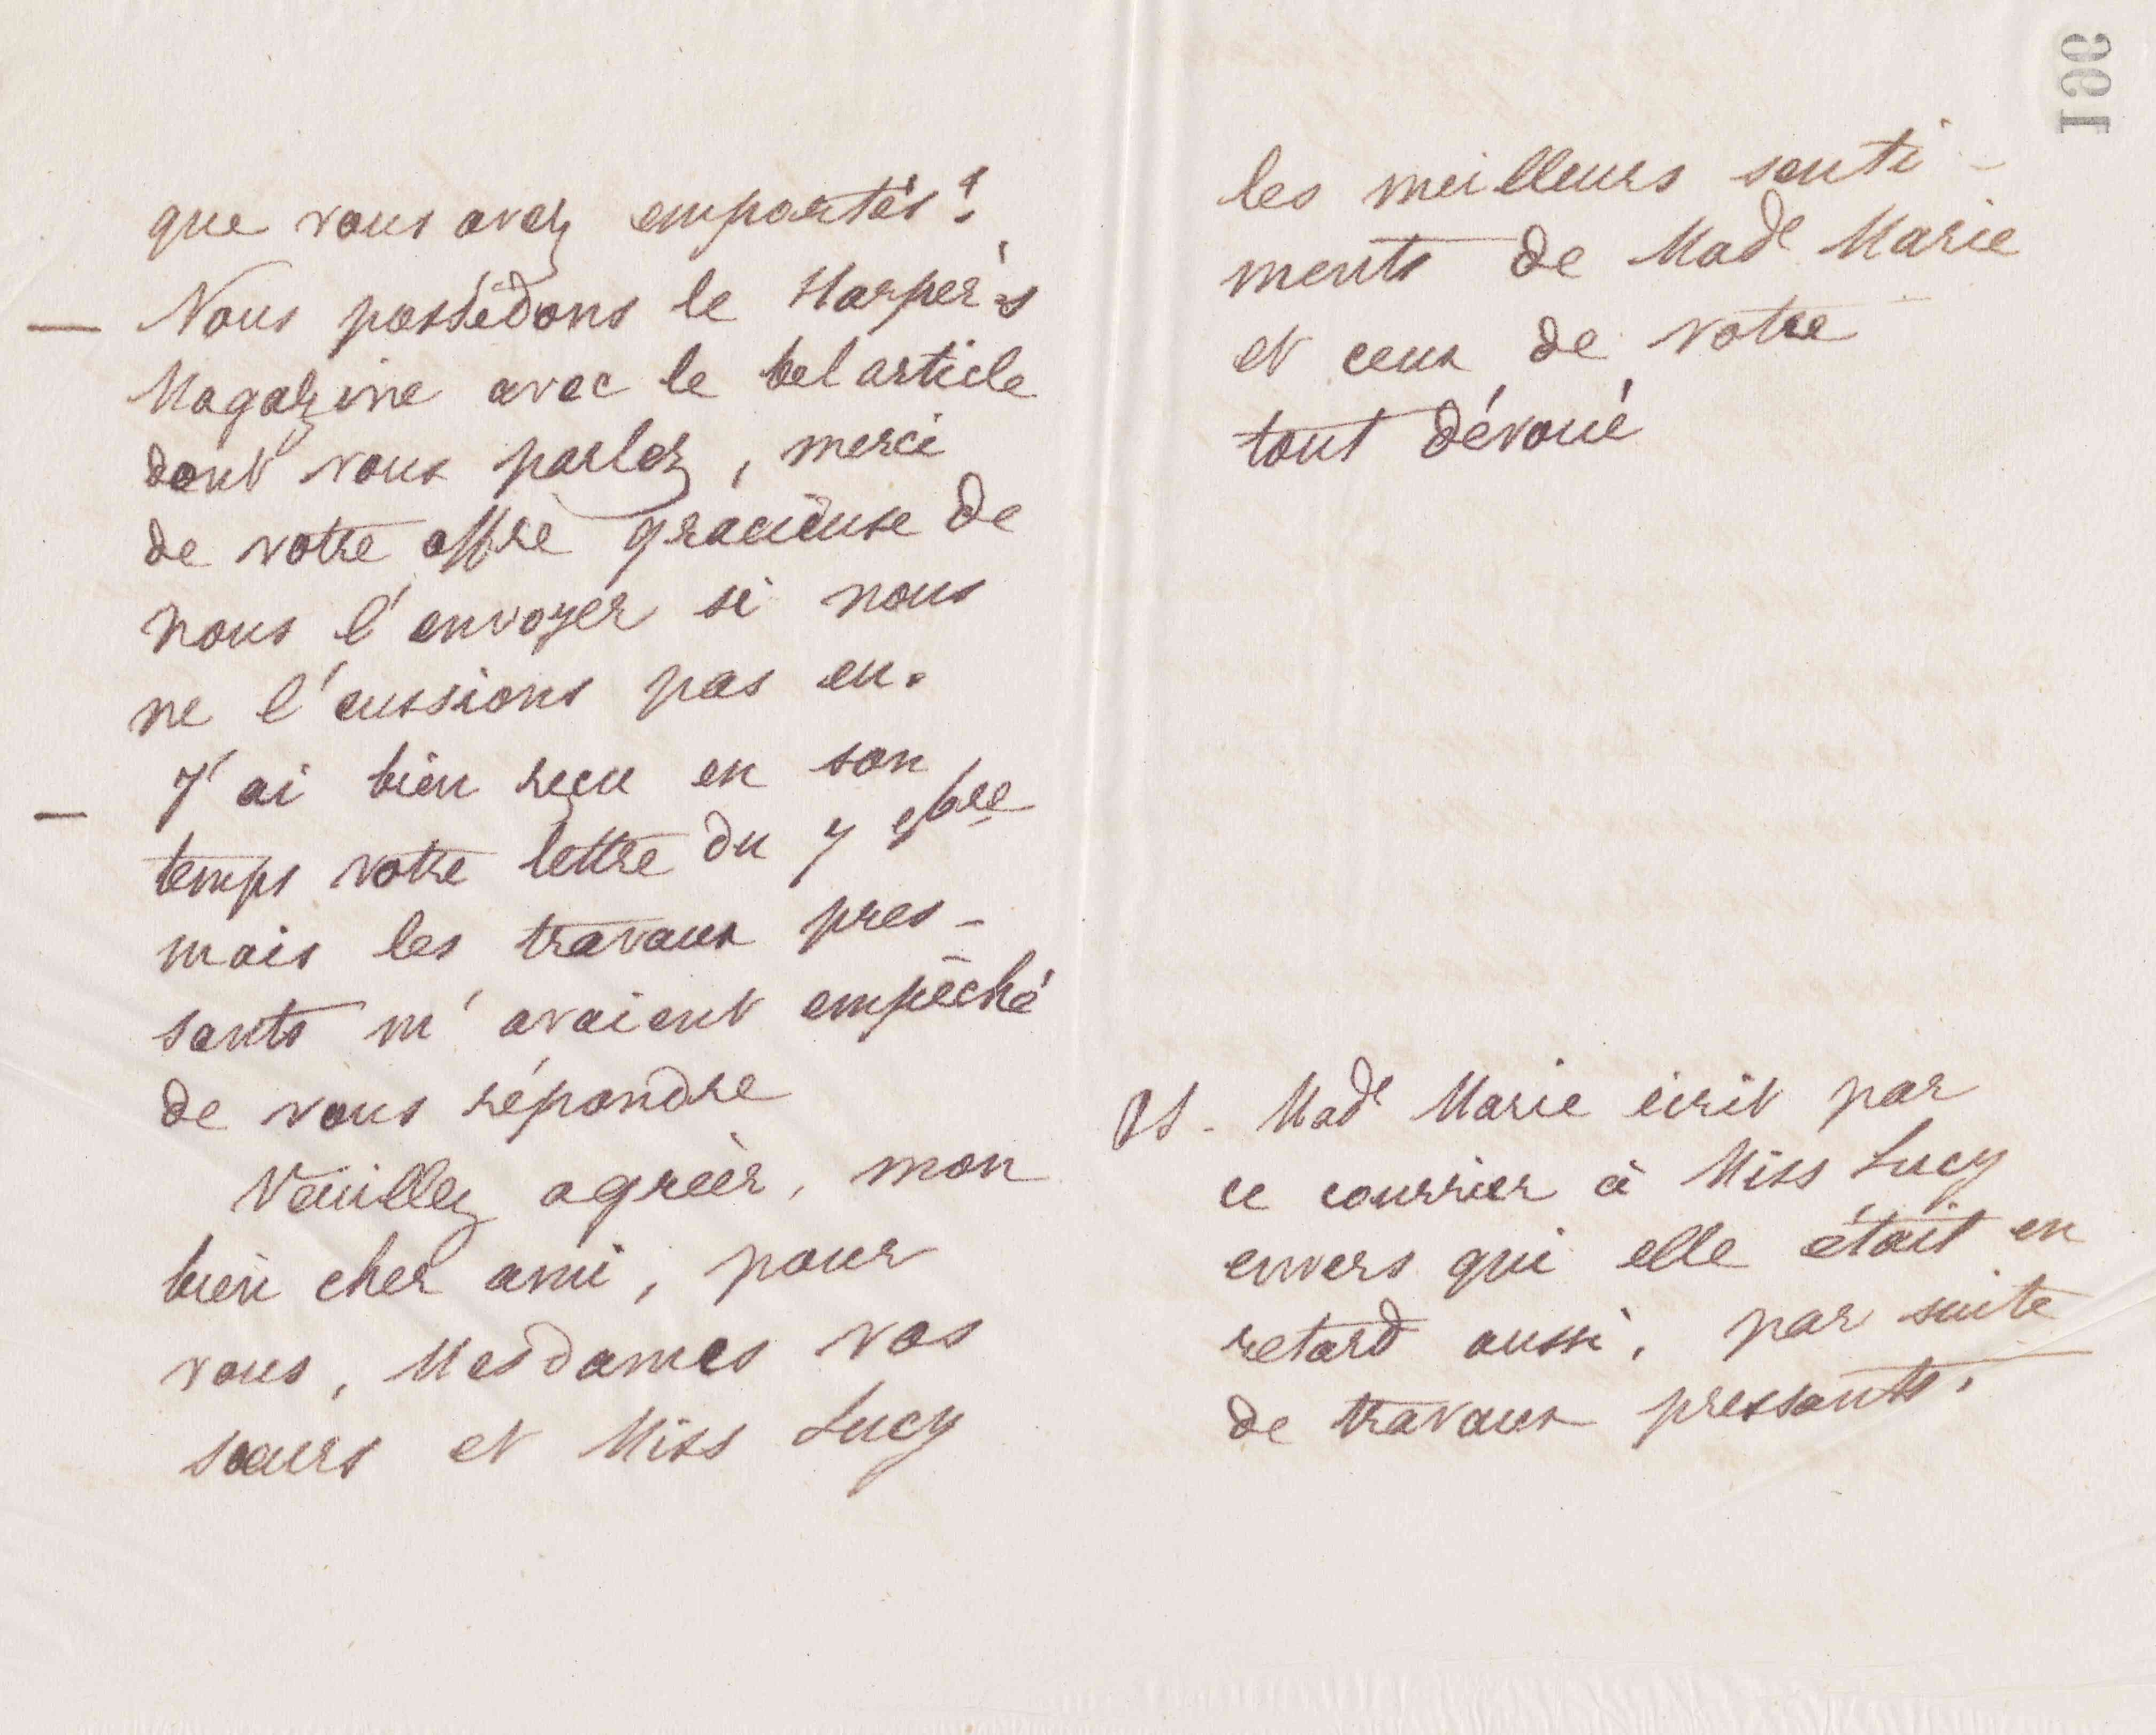 que vous avez emportés?
— Nous possédons le Harper's
Magazine avec le bel article
dont vous parlez, merci
de votre offre gracieuse de
nous l'envoyer si nous
ne l'eussions pas eu.
— J'ai bien reçu en son
temps votre lettre du 7 9bre
mais les travaux pres-
sants m'avaient empêché
de vous répondre
Veuillez agréer, mon
bien cher ami, pour
vous, Mesdames vos
soeurs et Miss Lucy
les meilleurs senti-
ments de Made Marie
et ceux de votre
tout dévoué
PS - Made Marie écrit par
ce courrier à Miss Lucy
envers qui elle était en
retard aussi, par suite
de travaux pressants.